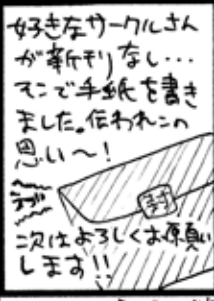 好きなサークルさん
が新刊なし…
そこで手紙を書き
ました。伝われこの
思い〜!
封
次はよろしくお願い
します!!